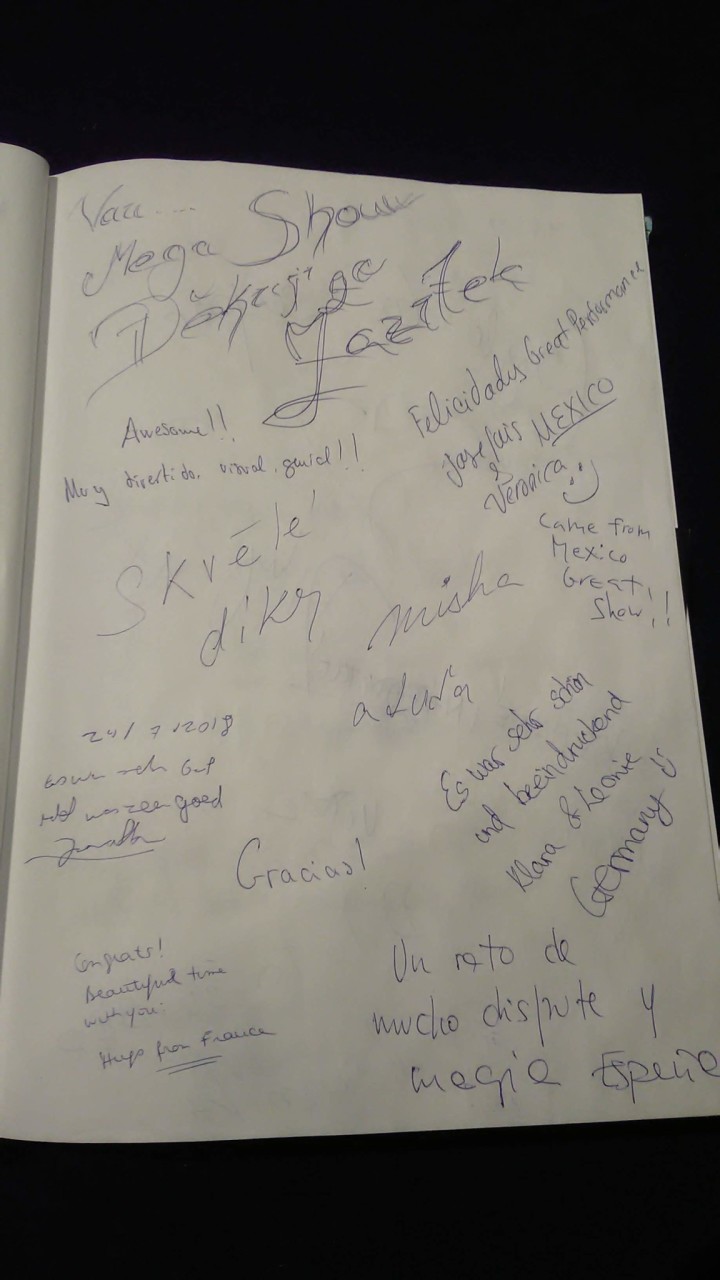 Vau....
Mega Show
Děkuji za
zážitek
Awesome!!
Muy divertido, visual, genial!!
Felicidades Great Performance
Jose Luis MEXICO
& Veronica
Came from
Mexico
Great
Show!!
Skvělé
díky
misha
a Luďa
24/7/2018
Es war sehr Gut
Het was zeer goed
Es war sehr schön
und beeindruckend
Klara & Leonie
Germany
Gracias!
Congrats!
Beautiful time
with you.
Hugo from France
Un rato de
mucho disfrute y
magia España